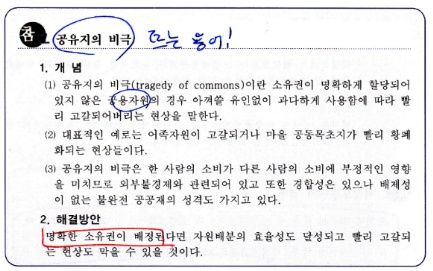 참 공유지의 비극 뜨는 용어!
1. 개 념
(1) 공유지의 비극(tragedy of commons)이란 소유권이 명확하게 할당되어
있지 않은 공용자원의 경우 아껴쓸 유인없이 과다하게 사용함에 따라 빨
리 고갈되어버리는 현상을 말한다.
(2) 대표적인 예로는 어족자원이 고갈되거나 마을 공동목초지가 빨리 황폐
화되는 현상들이다.
(3) 공유지의 비극은 한 사람의 소비가 다른 사람의 소비에 부정적인 영향
을 미치므로 외부불경제와 관련되어 있고 또한 경합성은 있으나 배제성
이 없는 불완전 공공재의 성격도 가지고 있다.
2. 해결방안
명확한 소유권이 배정된다면 자원배분의 효율성도 달성되고 빨리 고갈되
는 현상도 막을 수 있을 것이다.